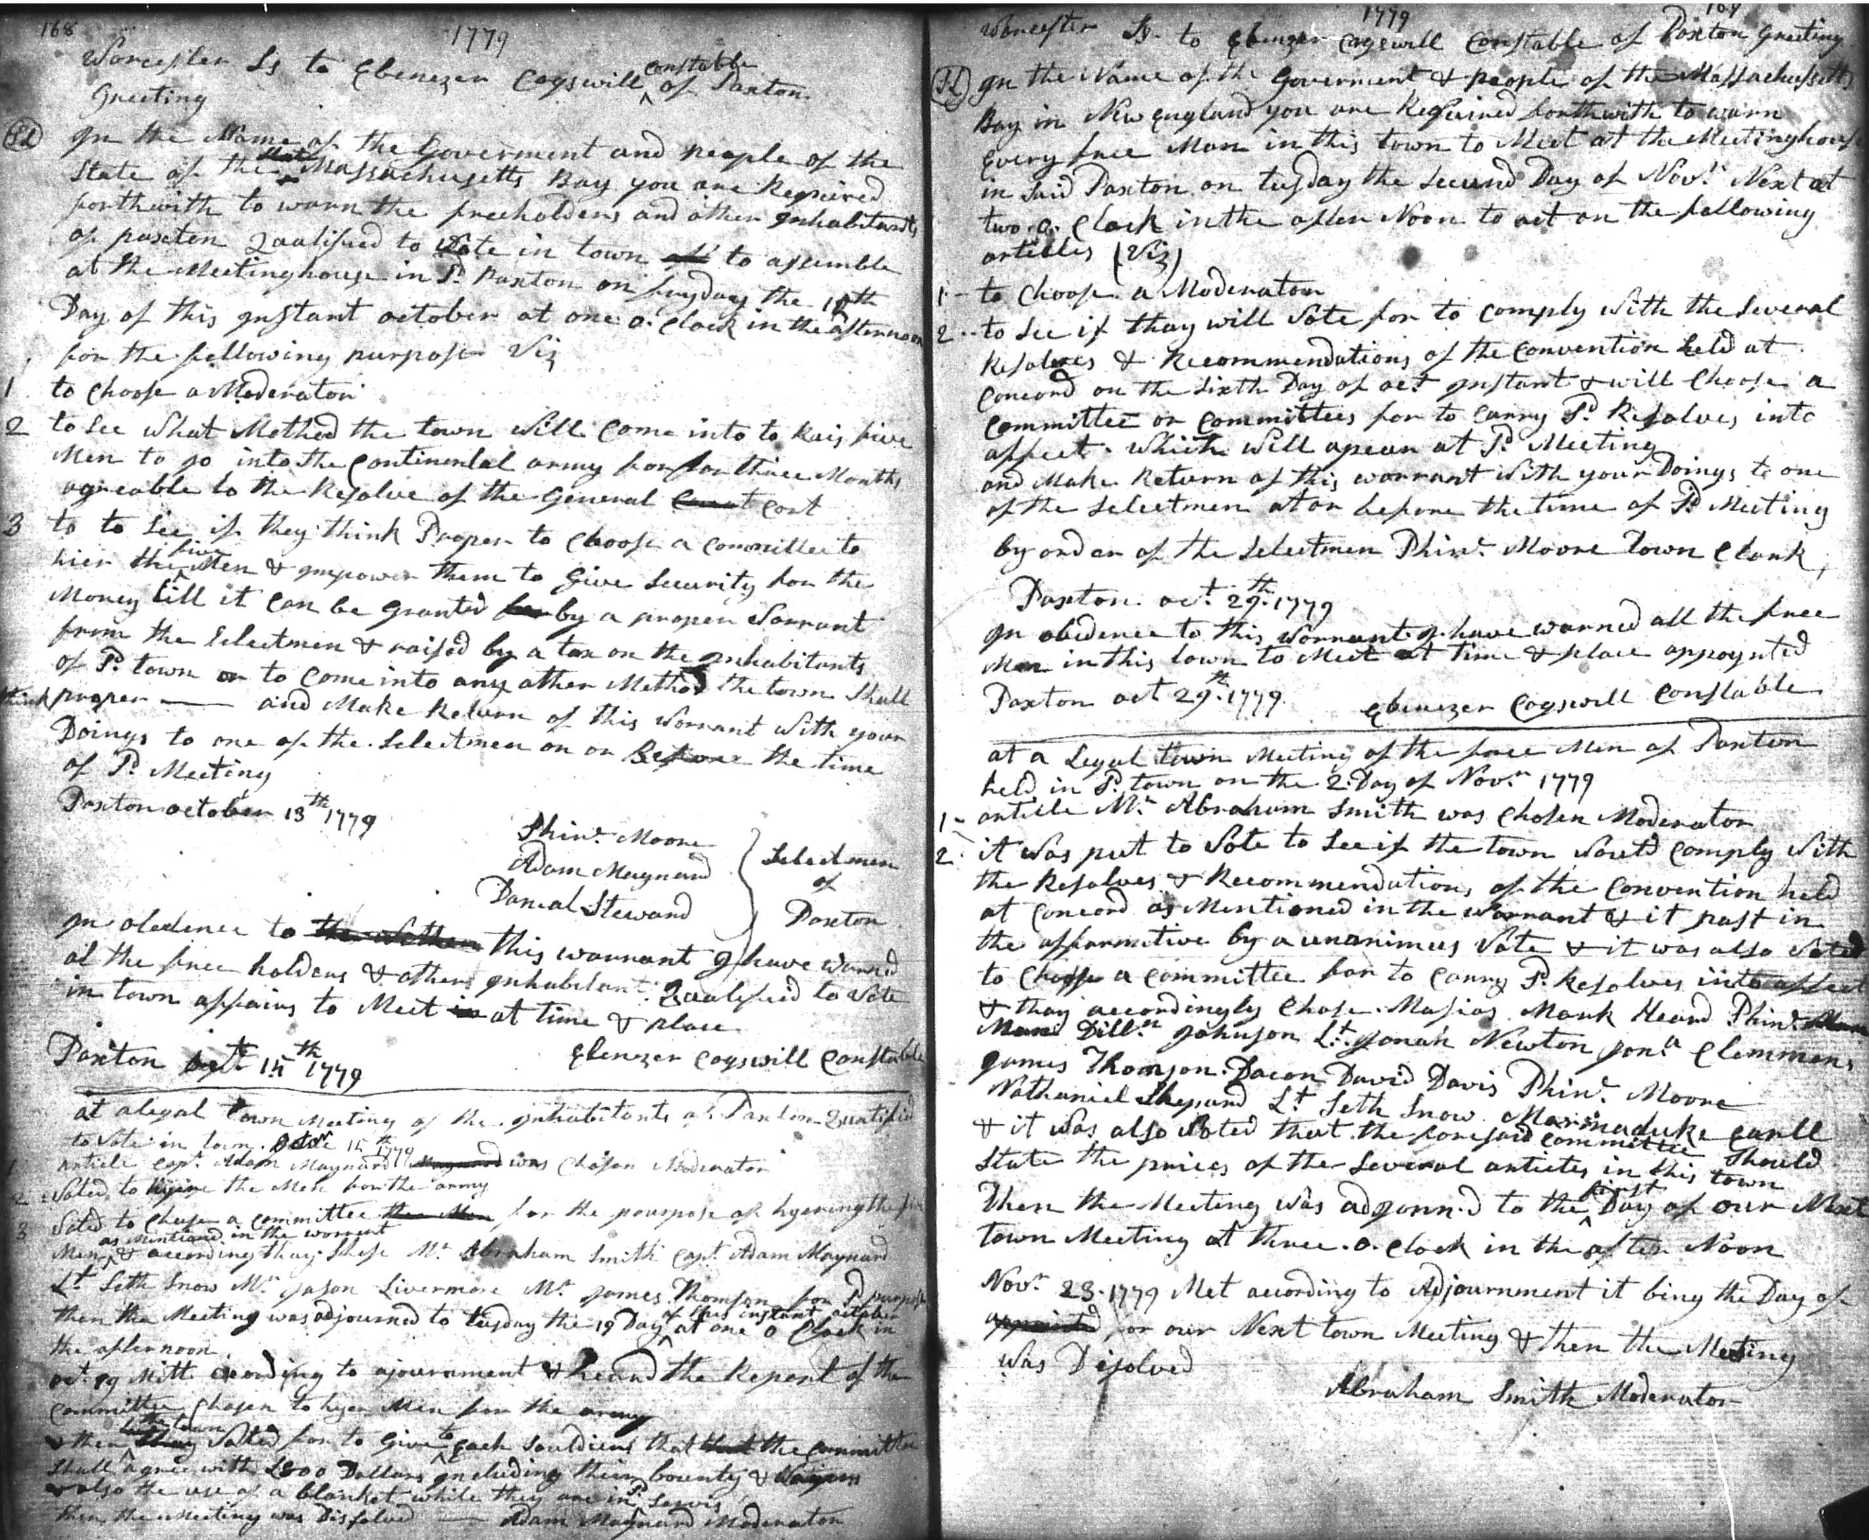 168
1779
Worcester Ss to Ebenezer Cogswill constable of Paxton
Greeting
In the Name of the Goverment and people of the
State of the Massachusetts Bay you are Requiered
forthwith to warn the freeholders and other Inhabitants
of paxton Qualified to Vote in town to assemble
at the Meetinghouse in Sd Paxton on the
Day of this Instant october at one o. Clock in the afternoon
for the following purpose Viz
1 to Choose a Moderator
2 to See What Method the town Will Come into to Rais five
Men to go into the Continental army for for three Months
agreable to the Resolve of the General Cort
3 to to See if they think Proper to Choose a committee to
hier the five Men & Impower them to Give Security for the
Money till it Can be Granted by a proper Warrant
from the Selectmen & raised by a tax on the Inhabitants
of Sd town or to Come into any other Method the town Shall
think proper — and Make Return of this Warrant With your
Doings to one of the Selectmen on or Before the time
of Sd Meeting
Paxton october 13th 1779
Phins Moore
Adam Maynard
Danial Steward
Selectmen
of
Paxton
In obedence to this warrant I have Warned
al the free holders & others Inhabitants Qualified to Vote
in town affairs to Meet at time & place
Paxton 15th 1779
Ebenezer Cogswill Constable
at a legal town Meeting of the Inhabitants of Paxton Qualified
to Vote in town 1779
1 article Capt Adam Maynard was Chosen Moderator
2 Voted to the Men for the army
3 Voted to Chuse a Committee for the pourpose of hyering the five
Men as mentioned in the worrent & according thay Chose Mr Abraham Smith Capt Adam Maynard
Lt Seth Snow Mr Jason Livermore Mr James Thomson for Sd purpose
then the Meeting was adjourned to tusday the 19 Day of this instant october at one o Clock in
the afternoon
oct 19 Mett acording to ajournment & heard the Report of the
committee Chosen to hyer Men for the army
& then the town Voted for to Give to Each Souldiers that the Committee
Shall agree with Dollars Including their bounty &
also the use of a blanket while they are in Sd Servis
then the Meeting was Dissolved — Adam Maynard Moderator
1779
Worcester Ss. to Ebenezer Cogswill Constable of Paxton Greeting
In the Name of the Goverment & people of the Massachusetts
Bay in New England you are Requiered forthwith to warn
Every free Man in this town to Meet at the Meetinghouse
in Said Paxton on tusday the Second Day of Novr Next at
two. o. Clock in the after Noon to act on the following
articles (Viz)
1- to Choose a Moderator
2- to See if thay will Vote for to comply With the Several
Resolves & Recommendations of the Convention held at
Concord on the Sixth Day of oct Instant & will Choose a
Committee or Committees for to Carry Sd Resolves into
affect. Which Will apear at Sd Meeting
and Make Return of this warrant With your Doings to one
of the Selectmen at or before the time of Sd Meeting
by order of the Selectmen Phins Moore Town Clark
Paxton oct 29th 1779
In obedence to this Warrant I have warned all the free
Men in this town to Meet at time & place appoynted
Paxton oct 29th 1779
Ebenezer Cogswill Constable
at a Legal town Meeting of the free Men of Paxton
held in Sd town on the 2 Day of Novr 1779
1- article Mr Abraham Smith was Chosen Moderator
2 it Was put to Vote to See if the town Would comply With
the Resolves & Recommendations of the Convention held
at Concord as Mentioned in the Warrant & it past in
the affarmitive by a unanimus Vote & it was also Voted
to Choose a Committee for to Carry Sd Resolves into affect
& thay accordingly Chose Masias Mark Heard Phins
Dilln Johnson Lt Jonah Newton Jona Clemmens
James Thomson Dacon David Davis Phins Moore
Nathaniel Shepard Lt Seth Snow Marmaduke Earll
& it Was also Voted that the foresaid Committee Should
State the prices of the Several articles in this town
Then the Meeting was adjornd to the first Day of our Next
town Meeting at three. o. Clock in the after Noon
Novr 23. 1779 Met acording to Adjournment it bing the Day of
for our Next town Meeting & then the Meeting
Was Disolved
Abraham Smith Moderator